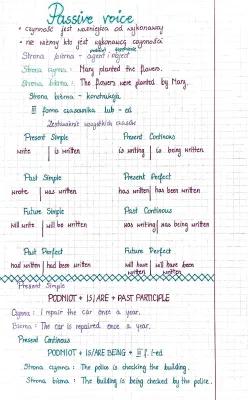 Passive voice
• czynność jest ważniejsza od wykonawcy
• nie wiemy kto jest wykonawcą czynności
Strona bierna - agent / object
Strona czynna : Mary planted the flowers.
Strona bierna : The flowers were planted by Mary.
Strona bierna - konstrukcja
III forma czasownika lub - ed
Zestawienie wszystkich czasów
Present Simple Present Continous
write | is written is writing | is being written
Past Simple Present Perfect
wrote | was written has written | has been written
Future Simple Past Continous
will write | will be written was writing | was being written
Past Perfect Future Perfect
had written | had been written will have written | will have been written
Present Simple
PODMIOT + IS/ARE + PAST PARTICIPLE
Czynna : I repair the car once a year.
Bierna : The car is repaired once a year.
Present Continous
PODMIOT + IS/ARE BEING + III f. /-ed
Strona czynna : The police is checking the building.
Strona bierna : The building is being checked by the police.